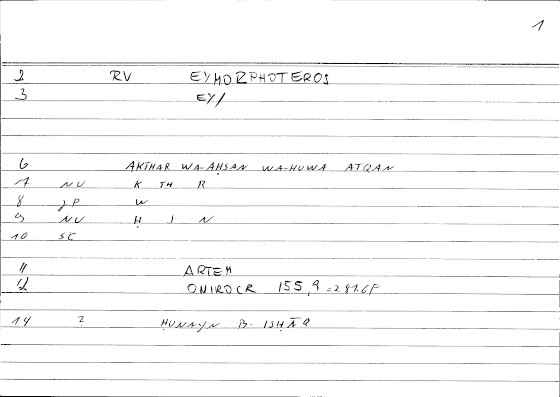 1
2 RV EYMORPHOTEROS
3 EY/
6 AKTHAR WA-AḤSAN WA-HUWA ATQAN
7 NU K TH R
8 JP W
9 NU Ḥ J N
10 SC
11 ARTEM
12 ONIROCR 155,9 = 281.6P
14 2 ḤUNAYN B. ISḤĀQ